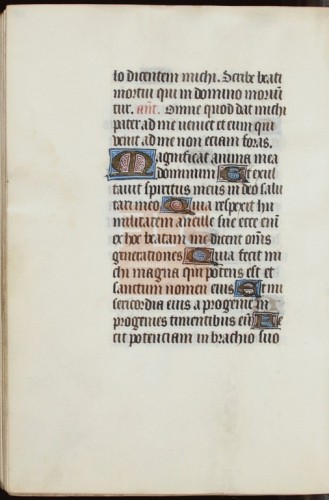 lo dicentem michi. Scribe beati
mortui qui in domino moriūt
tur. ant. Omne quod dat michi
pater ad me veniet et eum qui
venit ad me non eciam foras.
Magnificat anima mea
dominum Et exul
tavit spiritus meus in deo salu
tari meo Quia respexit hu
militatem ancille sue ecce eni
ex hoc beatam me dicent om̄s
generationes Quia fecit mi
chi magna qui potens est et
sanctum nomen eius Et mi
sericordia eius a progenie in
progenies timentibus eū Fe
cit potenciam in brachio suo